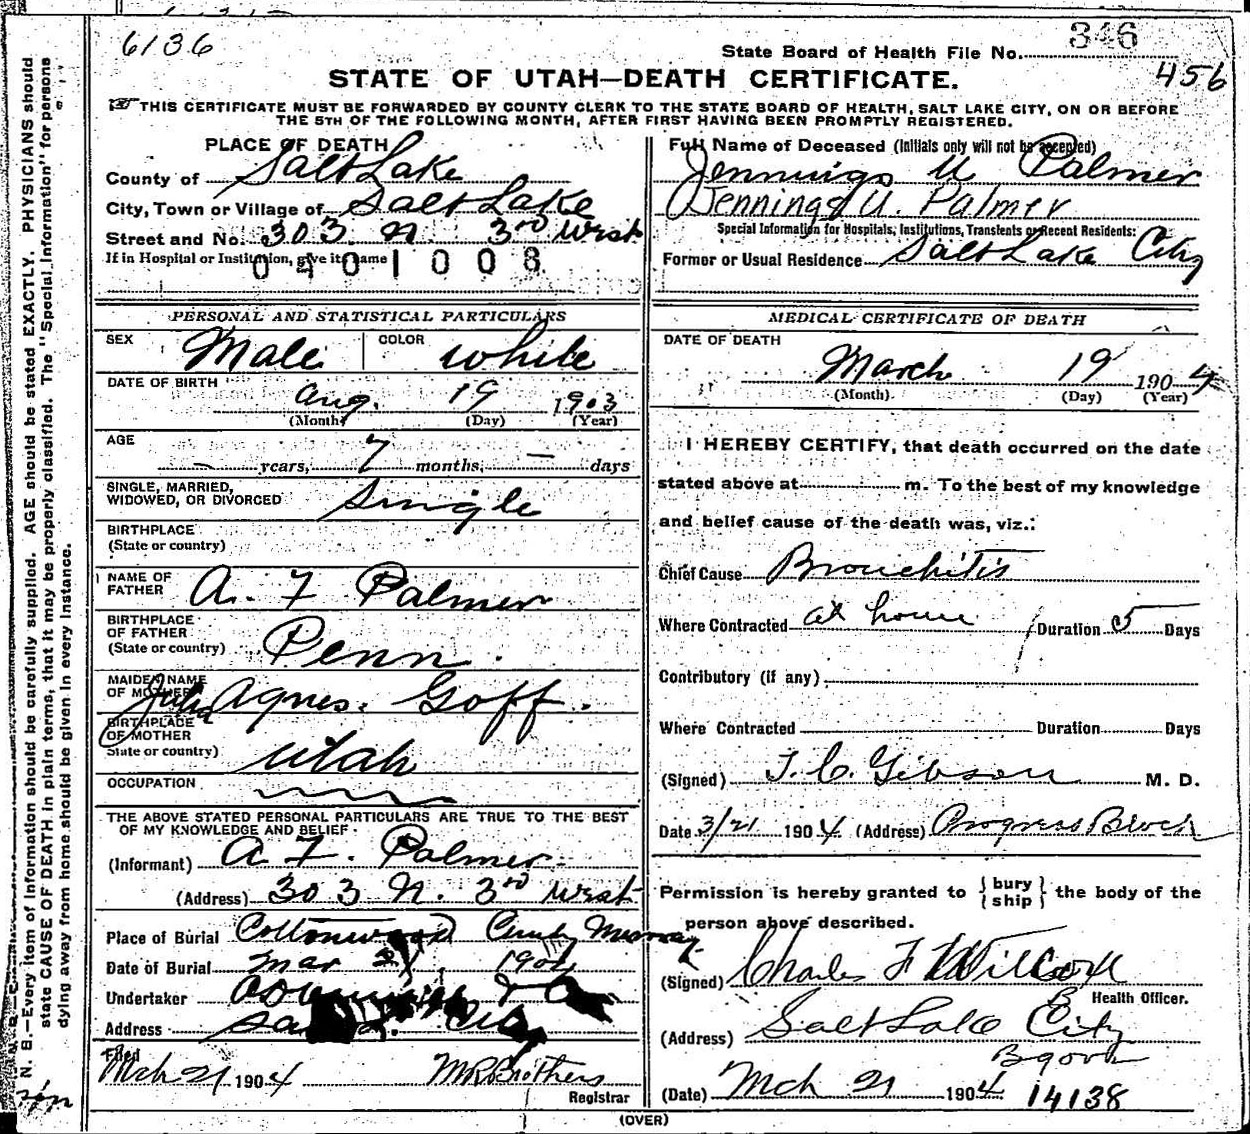 6136
State Board of Health File No. 346
456
STATE OF UTAH—DEATH CERTIFICATE.
☞ THIS CERTIFICATE MUST BE FORWARDED BY COUNTY CLERK TO THE STATE BOARD OF HEALTH, SALT LAKE CITY, ON OR BEFORE
THE 5TH OF THE FOLLOWING MONTH, AFTER FIRST HAVING BEEN PROMPTLY REGISTERED.
PLACE OF DEATH
County of Salt Lake
City, Town or Village of Salt Lake
Street and No. 303 N. 3rd West
If in Hospital or Institution, give its name
0401008
Full Name of Deceased (Initials only will not be accepted)
Jennings U Palmer
Jennings U. Palmer
Special Information for Hospitals, Institutions, Transients or Recent Residents:
Former or Usual Residence Salt Lake City
PERSONAL AND STATISTICAL PARTICULARS
SEX Male COLOR White
DATE OF BIRTH Aug. 19 1903
(Month) (Day) (Year)
AGE
— years, 7 months, — days
SINGLE, MARRIED,
WIDOWED, OR DIVORCED Single
BIRTHPLACE
(State or country)
NAME OF
FATHER A. F Palmer
BIRTHPLACE
OF FATHER
(State or country) Penn.
MAIDEN NAME
OF MOTHER Julia Agnes. Goff.
BIRTHPLACE
OF MOTHER
State or country) Utah
OCCUPATION
THE ABOVE STATED PERSONAL PARTICULARS ARE TRUE TO THE BEST
OF MY KNOWLEDGE AND BELIEF
(Informant) A F. Palmer
(Address) 303 N. 3rd West
Place of Burial Cottonwood Murray
Date of Burial Mar 21, 1904
Undertaker
Address City
Filed
Mch 21 1904 Brothers
Registrar
MEDICAL CERTIFICATE OF DEATH
DATE OF DEATH
March 19 1904
(Month) (Day) (Year)
I HEREBY CERTIFY, that death occurred on the date
stated above at m. To the best of my knowledge
and belief cause of the death was, viz.:
Chief Cause Bronchitis
Where Contracted at home Duration 5 Days
Contributory (if any)
Where Contracted Duration Days
(Signed) J. C. Gibson M. D.
Date 3/21 1904 (Address) Progress Block
Permission is hereby granted to {bury ship} the body of the
person above described.
(Signed) Charles F Wilcox
Health Officer.
(Address) Salt Lake City
(Date) Mch 21 1904 14138
(OVER)
N. B.—Every item of information should be carefully supplied. AGE should be stated EXACTLY. PHYSICIANS should
state CAUSE OF DEATH in plain terms, that it may be properly classified. The "Special Information" for persons
dying away from home should be given in every instance.